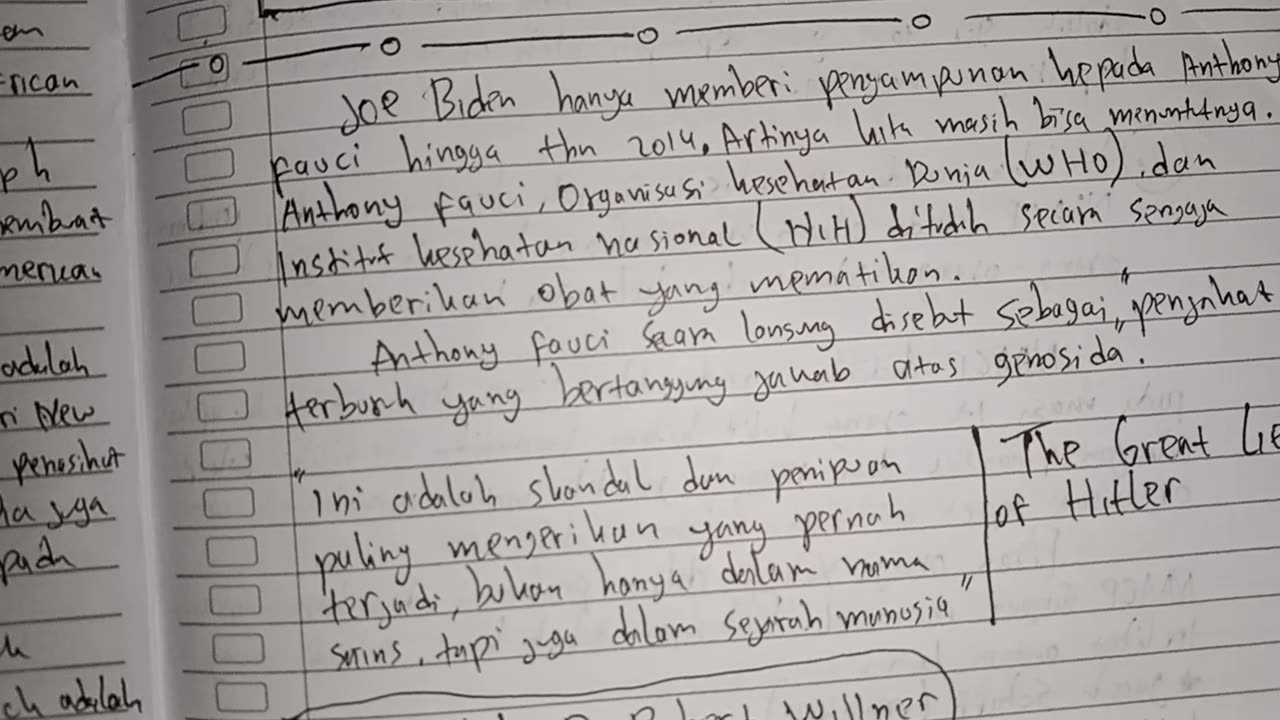 em
rican
ph
embuat
merika
adalah
ri New
penasihat
ia juga
pada
ch adalah
Joe Biden hanya memberi pengampunan kepada Anthony
Fauci hingga thn 2014, Artinya kita masih bisa menuntutnya.
Anthony Fauci, Organisasi kesehatan Dunia (WHO), dan
Institut kesehatan nasional (NIH) dituduh secara sengaja
memberikan obat yang mematikan.
Anthony Fauci secara lansung disebut sebagai "penjahat
terburuk yang bertanggung jawab atas genosida".
"Ini adalah skandal dan penipuan
paling mengerikan yang pernah
terjadi, bukan hanya dalam nama
sains, tapi juga dalam sejarah manusia"
The Great Lie
of Hitler
Willner